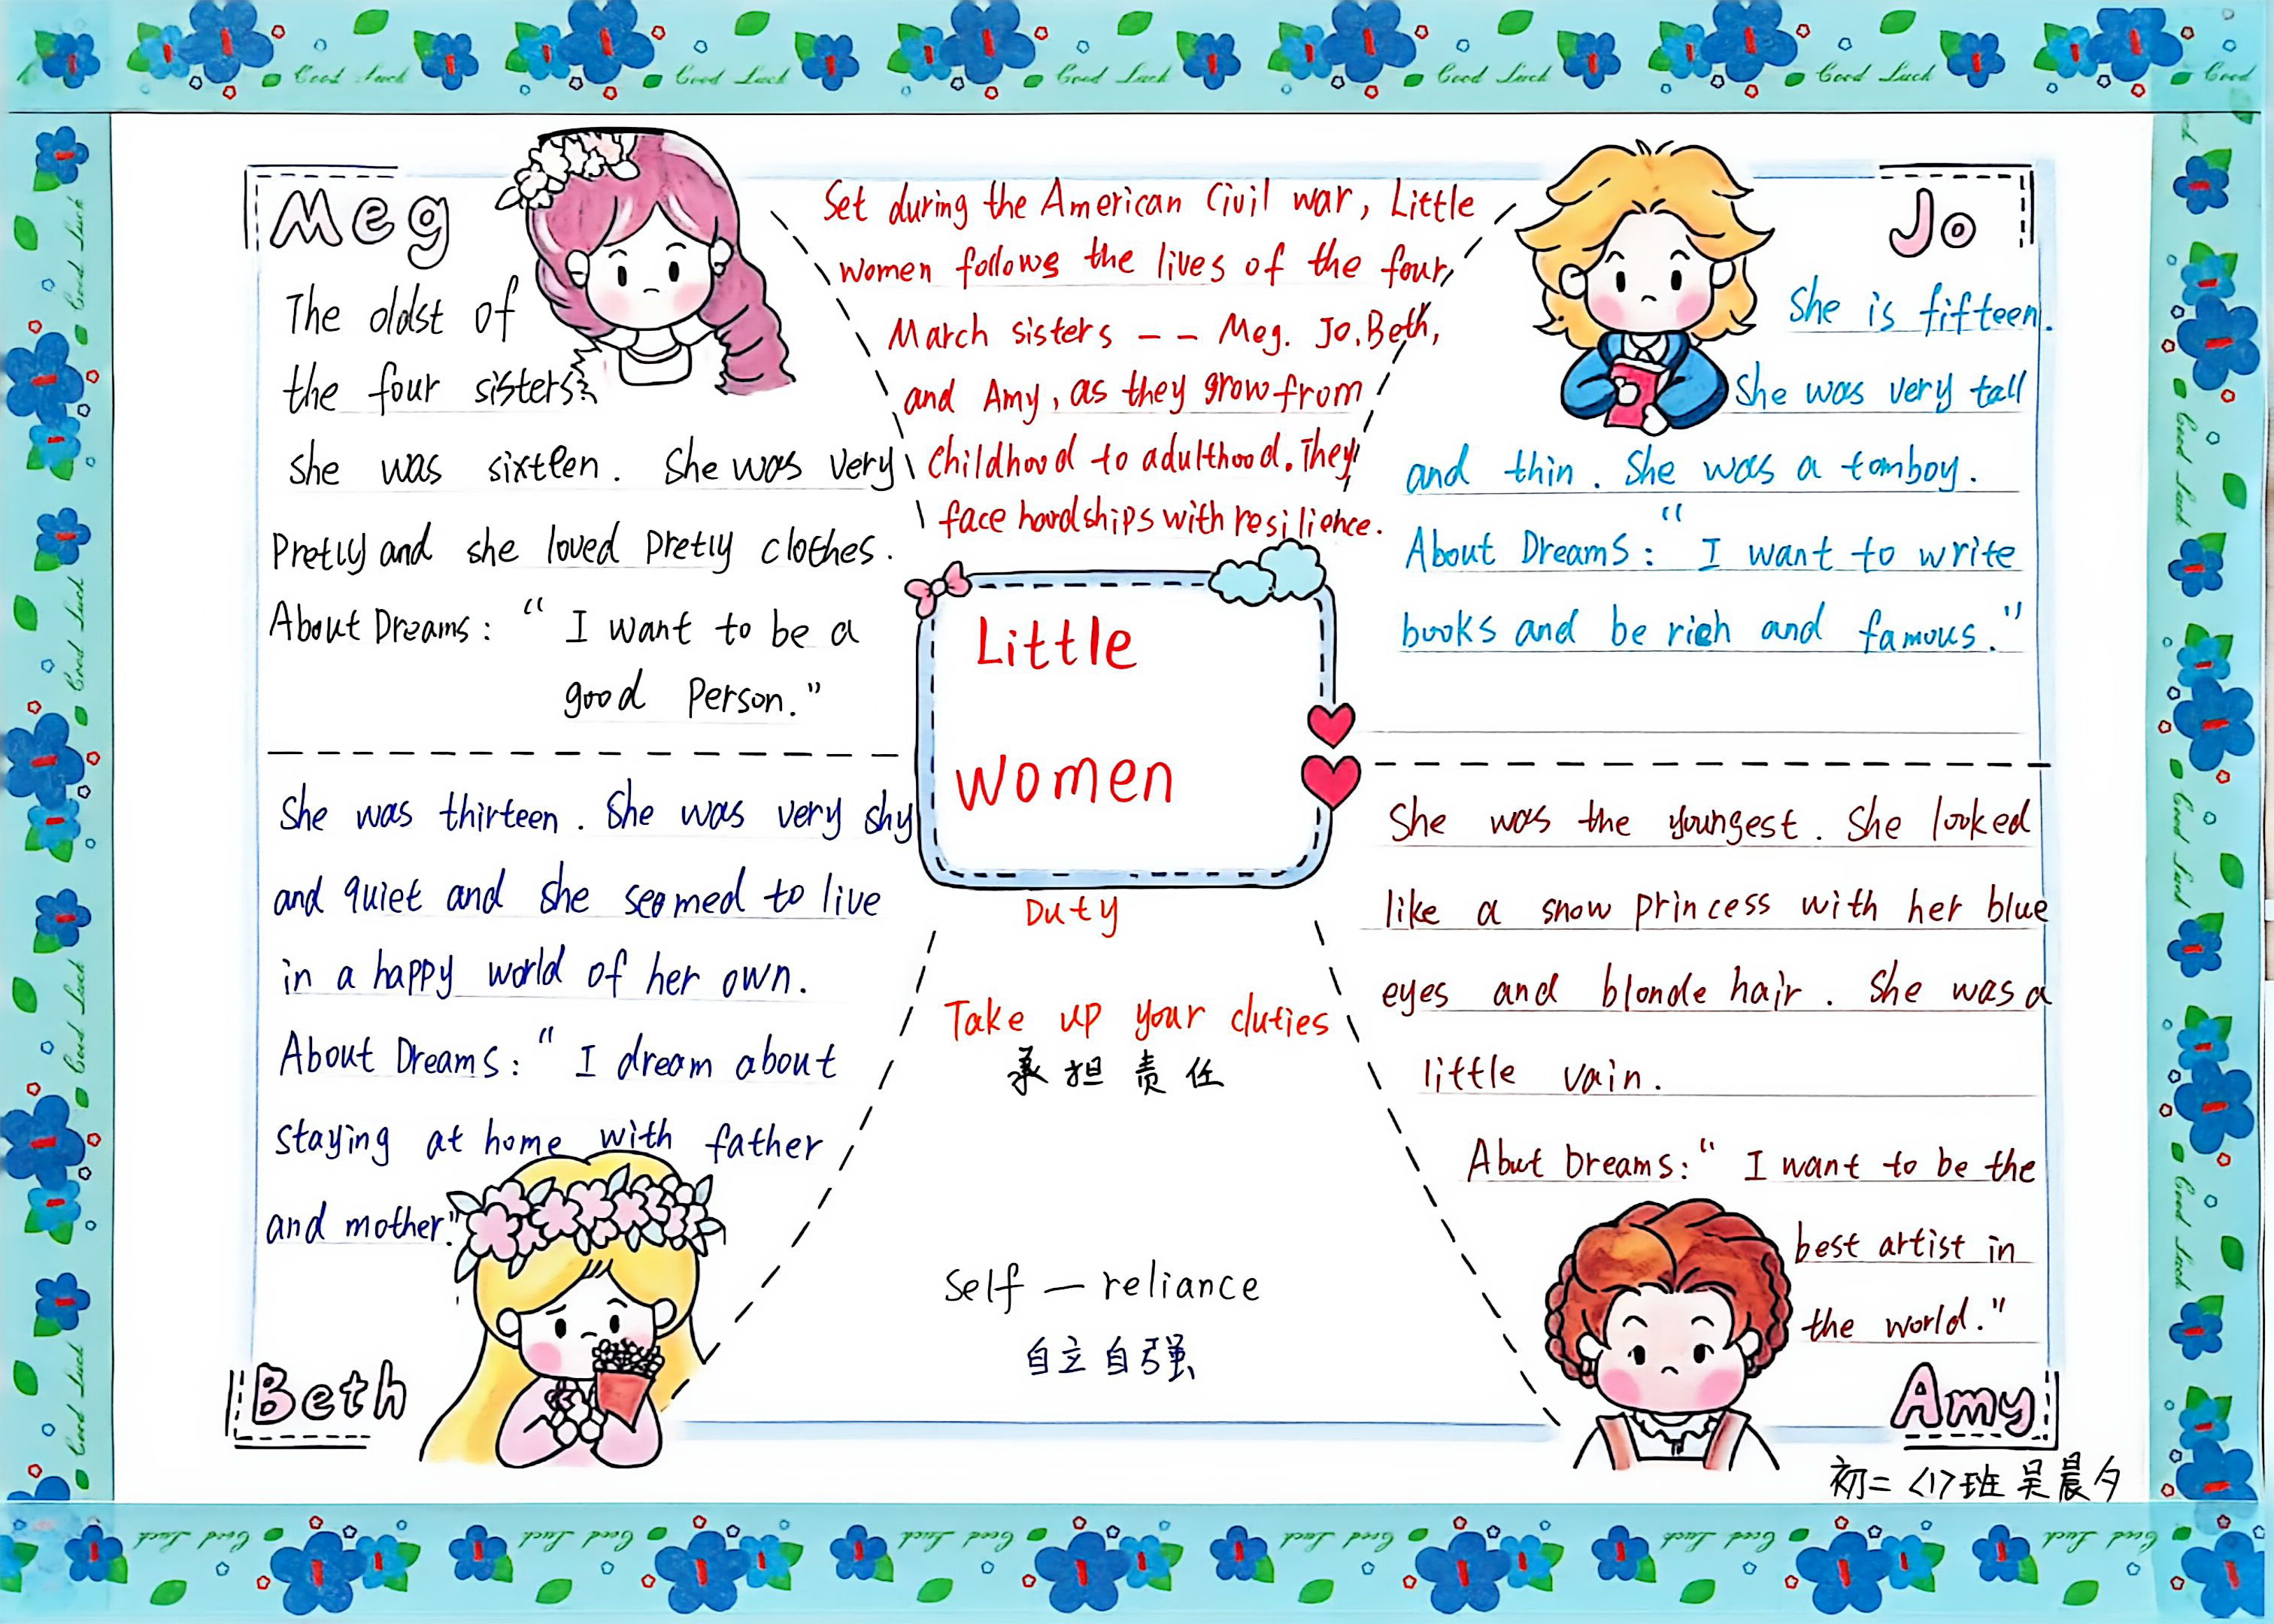 Meg
The oldst of
the four sisters
she was sixteen. She was very
Pretty and she loved Pretty clothes.
About Dreams: "I want to be a
good Person."
Set during the American Civil war, Little
Women follows the lives of the four
March sisters -- Meg. Jo. Beth,
and Amy, as they grow from
childhood to adulthood. They
face hardships with resilience.
Jo
She is fifteen.
She was very tall
and thin. She was a tomboy.
About Dreams: "I want to write
books and be rich and famous."
Little
Women
She was thirteen. She was very shy
and quiet and she seemed to live
in a happy world of her own.
About Dreams: "I dream about
staying at home with father
and mother."
Beth
Duty
Take up your duties
承担责任
Self — reliance
自立自强
She was the youngest. She looked
like a snow princess with her blue
eyes and blonde hair. She was a
little vain.
Abut Dreams: "I want to be the
best artist in
the world."
Amy
初二<17班 吴晨夕
Good Luck Good Luck Good Luck Good Luck Good Luck Good